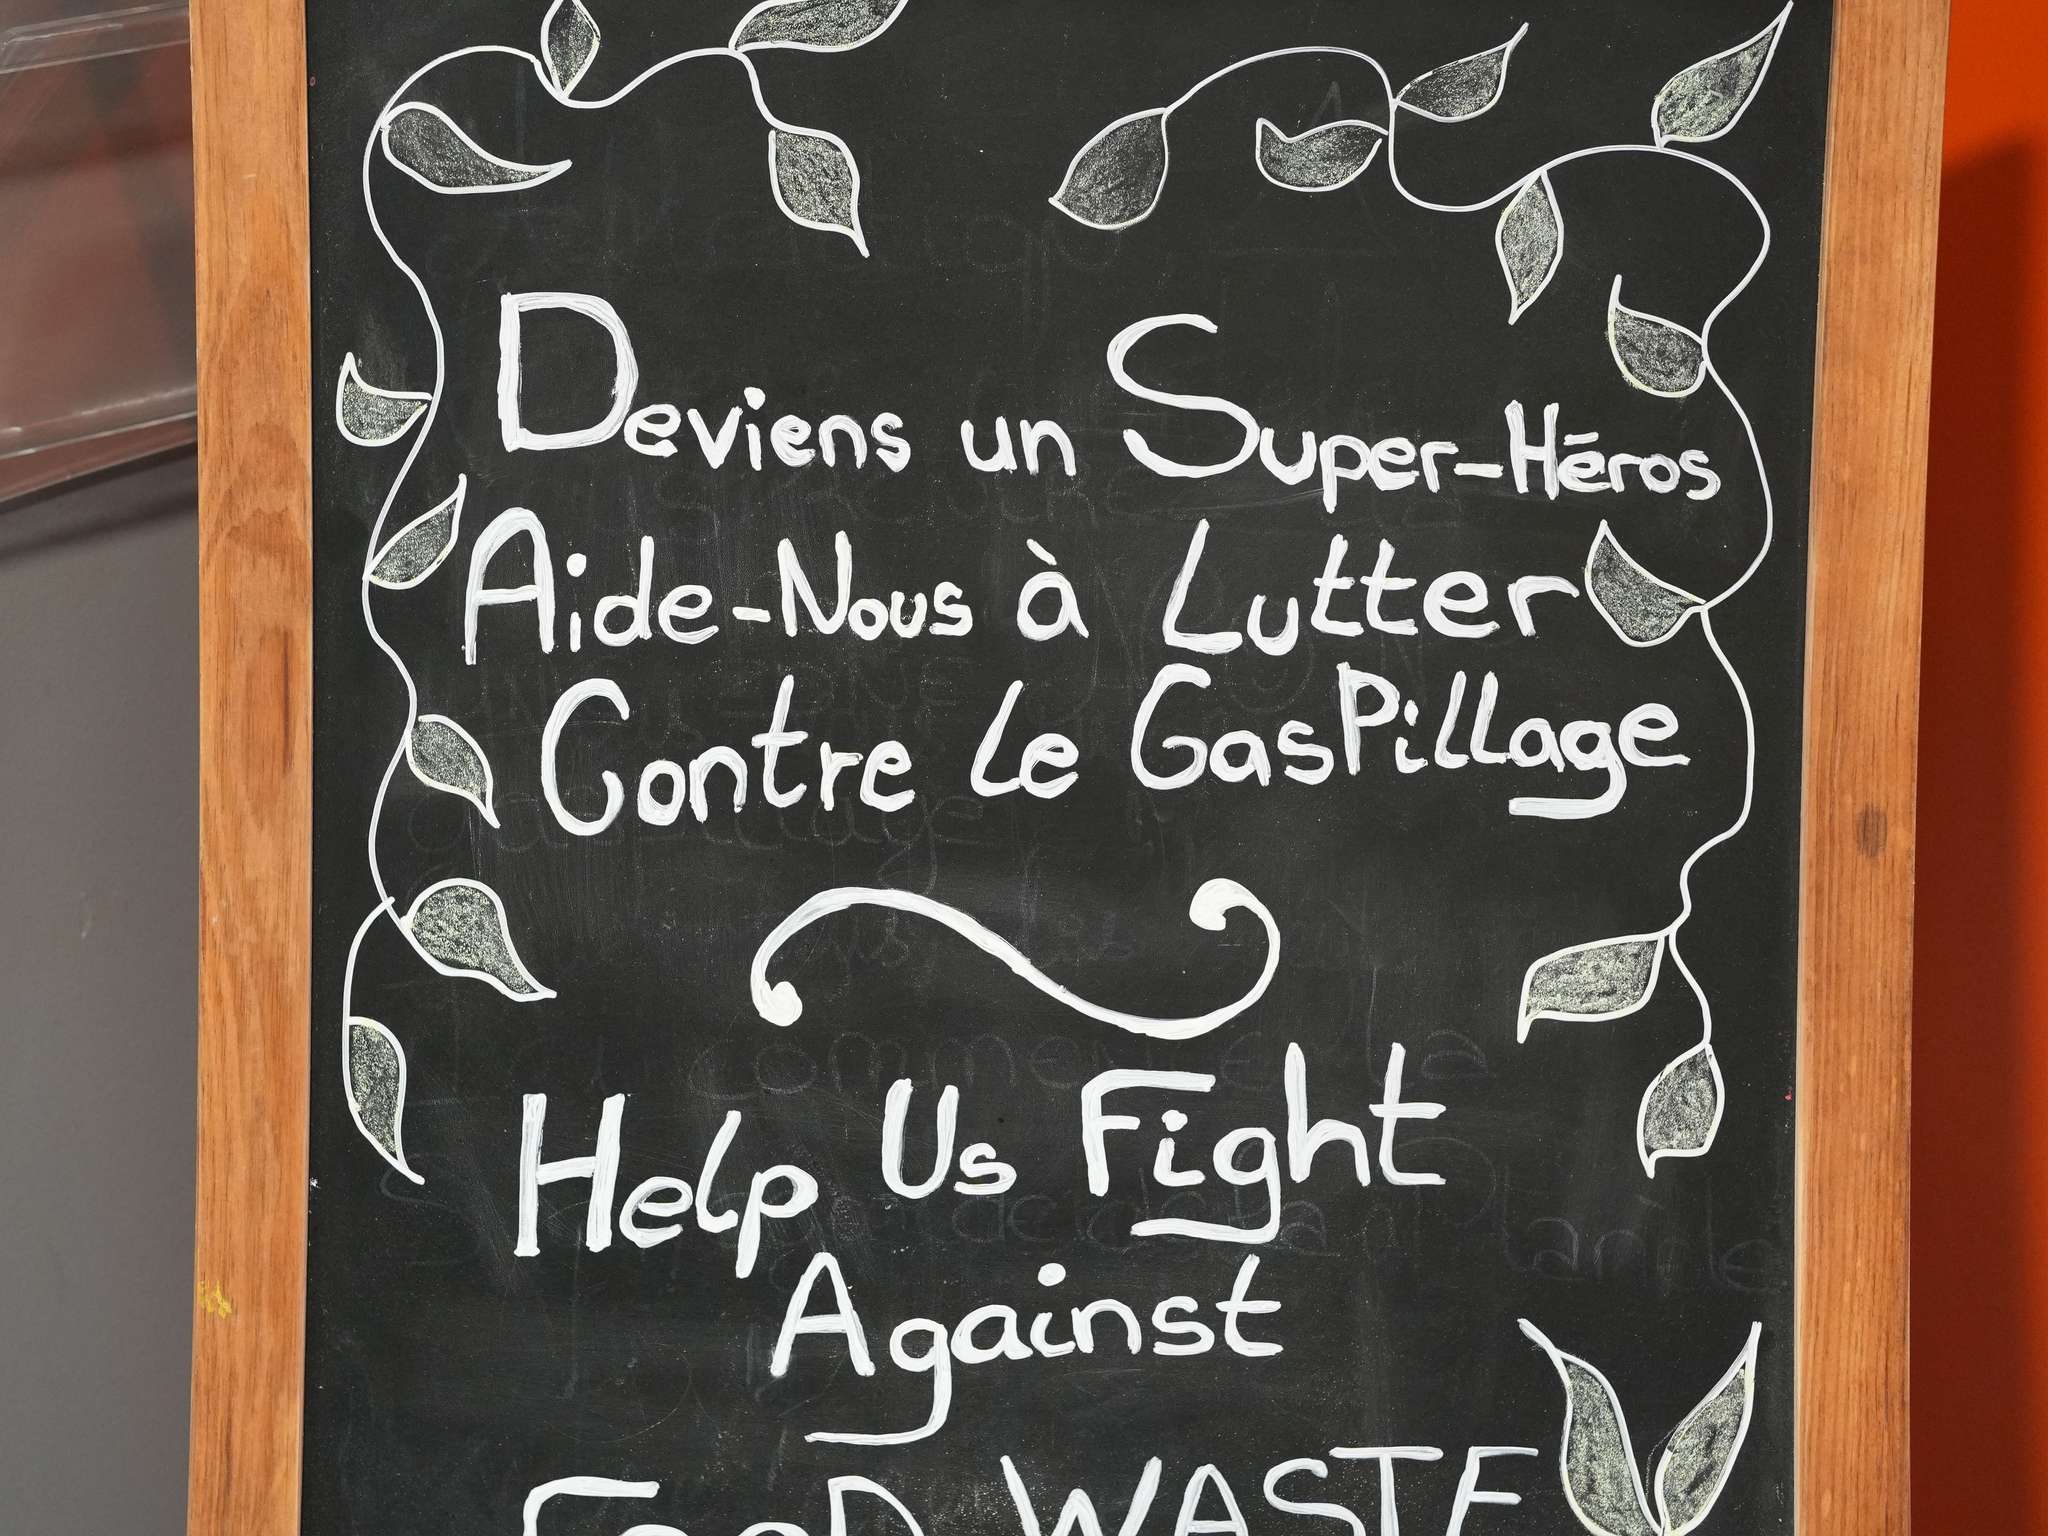 Deviens un Super-Héros
Aide-Nous à Lutter
Contre le GasPillage
Help Us Fight
Against
FooD WASTE